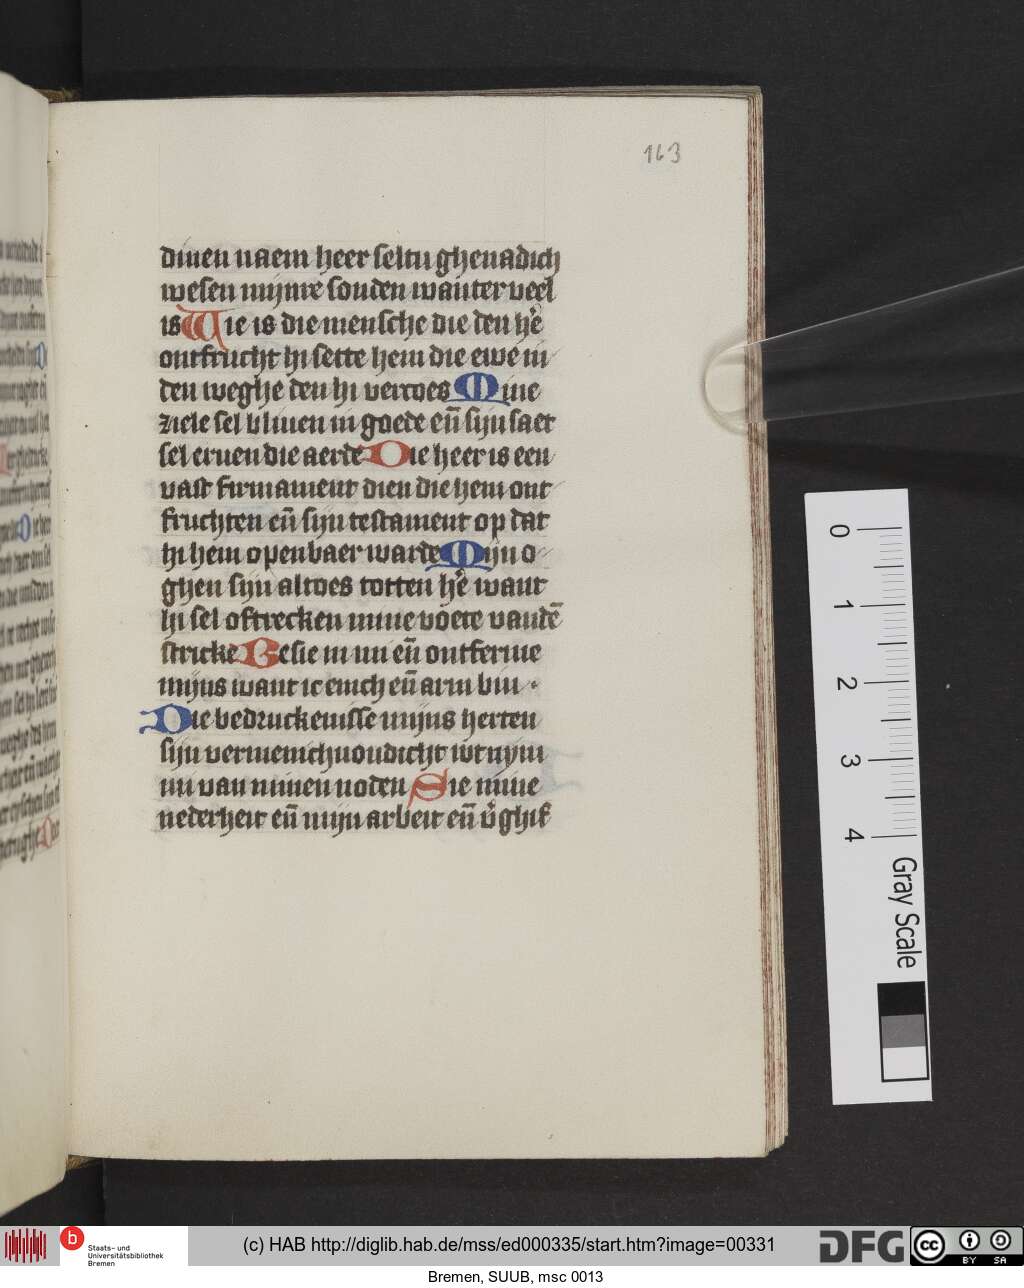 163
dinen naem heer seltu ghenadich
wesen mijnre sonden want er veel
is Wie is die mensche die den he᷎
ontfrucht hi sette hem die ewe in
den weghe den hi vercoes Mine
ziele sel bliuen in goede eñ sijn saet
sel eruen die aerde Die heer is een
vast firmament dien die hem ont
fruchten eñ sijn testament op dat
hi hem openbaer warde Mijn o
ghen sijn altoes totten he᷎ want
hi sel oftrecken mine voete vandē
stricke Besie in mi eñ ontferme
mijns want ic enich eñ arm bin
Die bedruckenisse mijns herten
sijn vermenichuoudicht wt nym
mi van minen noden Sie mine
nederheit eñ mijn arbeit eñ v᷎ghif
0
1
2
3
4
Gray Scale
b
Staats- und
Universitätsbibliothek
Bremen
(c) HAB http://diglib.hab.de/mss/ed000335/start.htm?image=00331
DFG
cc
BY
SA
Bremen, SUUB, msc 0013